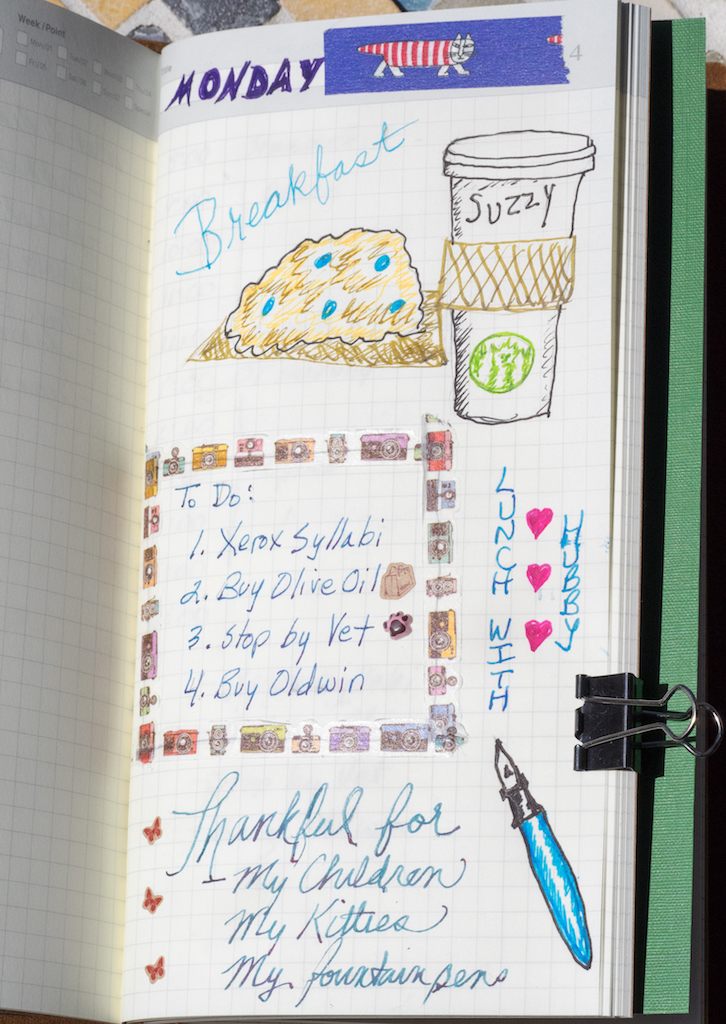 Week/Point
MONDAY
4
Breakfast
SUZZY
To Do:
1. Xerox Syllabi
2. Buy Olive Oil
3. Stop by Vet
4. Buy Oldwin
LUNCH WITH
HUBBY
Thankful for
- My Children
My Kitties
My fountain pens